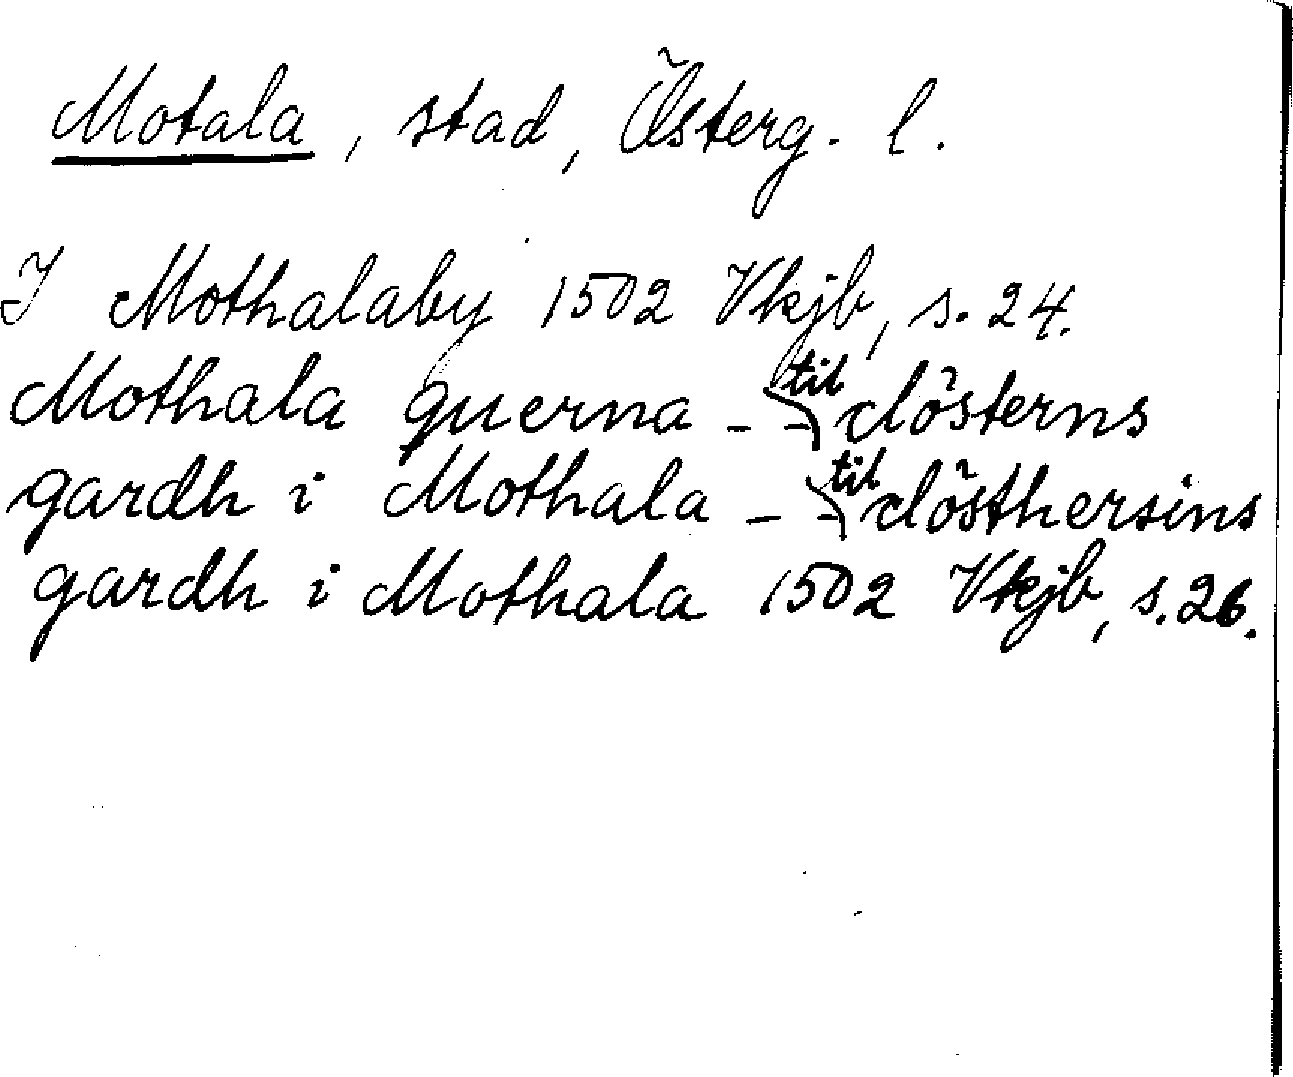 Motala, stad, Österg. l.
I Mothalaby 1502 Vkjb, s. 24.
Mothala querna - - til clösterns
gardh i Mothala - - til clösthersins
gardh i Mothala 1502 Vkjb, s. 26.